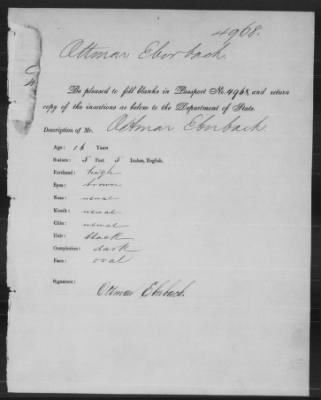 4968.
Ottmar Eberbach.
Be pleased to fill blanks in Passport No. 4968, and return
copy of the insertions as below to the Department of State.
Description of Mr. Ottmar Eberbach
Age: 16 Years
Stature: 5 Feet 5 Inches, English.
Forehead: high
Eyes: brown
Nose: usual
Mouth: usual
Chin: usual
Hair: black
Complexion: dark
Face: oval
Signature:
Ottmar Eberbach.